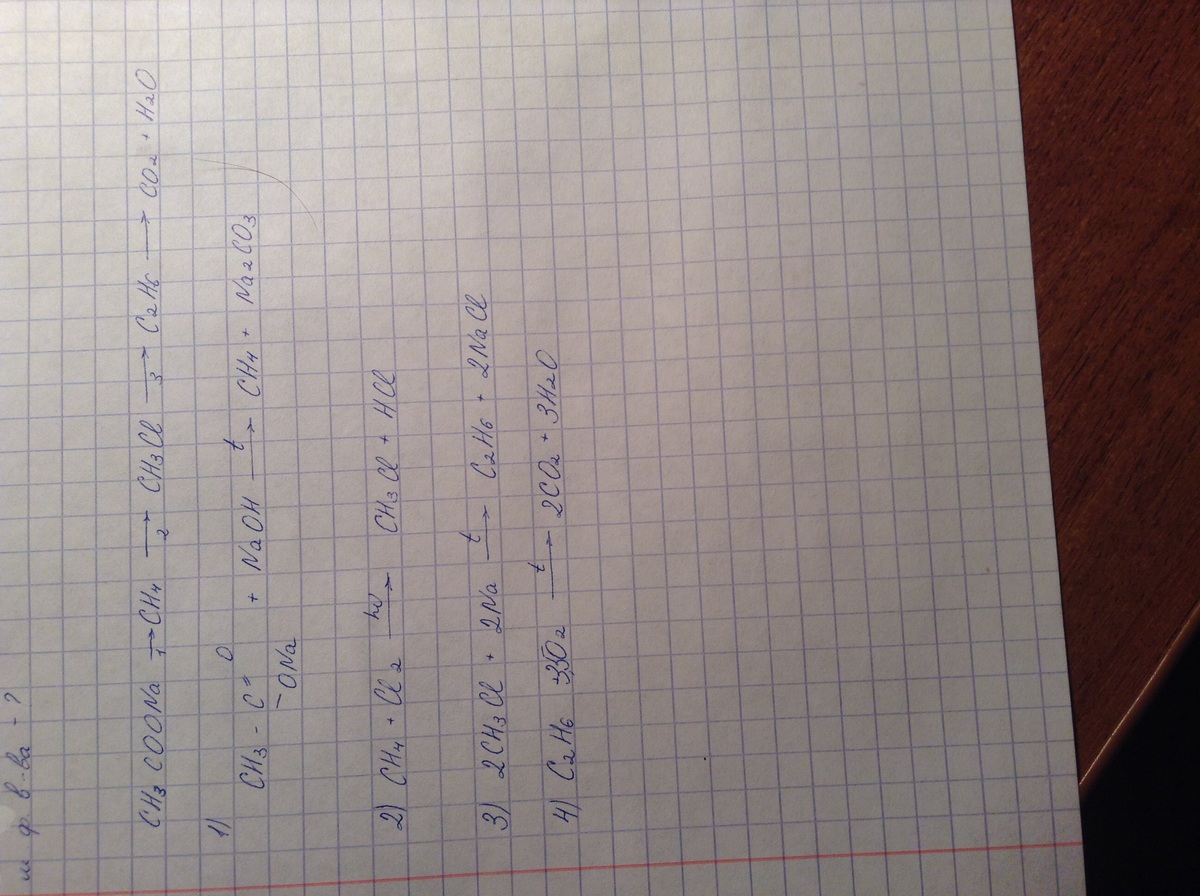 м ф в-ва - ?
CH₃COONa →₁ CH₄ →₂ CH₃Cl →₃ C₂H₆ → CO₂ + H₂O
1)
CH₃ - C = O + NaOH →ᵗ CH₄ + Na₂CO₃
- ONa
2) CH₄ + Cl₂ →ʰᵛ CH₃Cl + HCl
3) 2CH₃Cl + 2Na →ᵗ C₂H₆ + 2NaCl
4) C₂H₆ O₂ →ᵗ 2CO₂ + 3H₂O